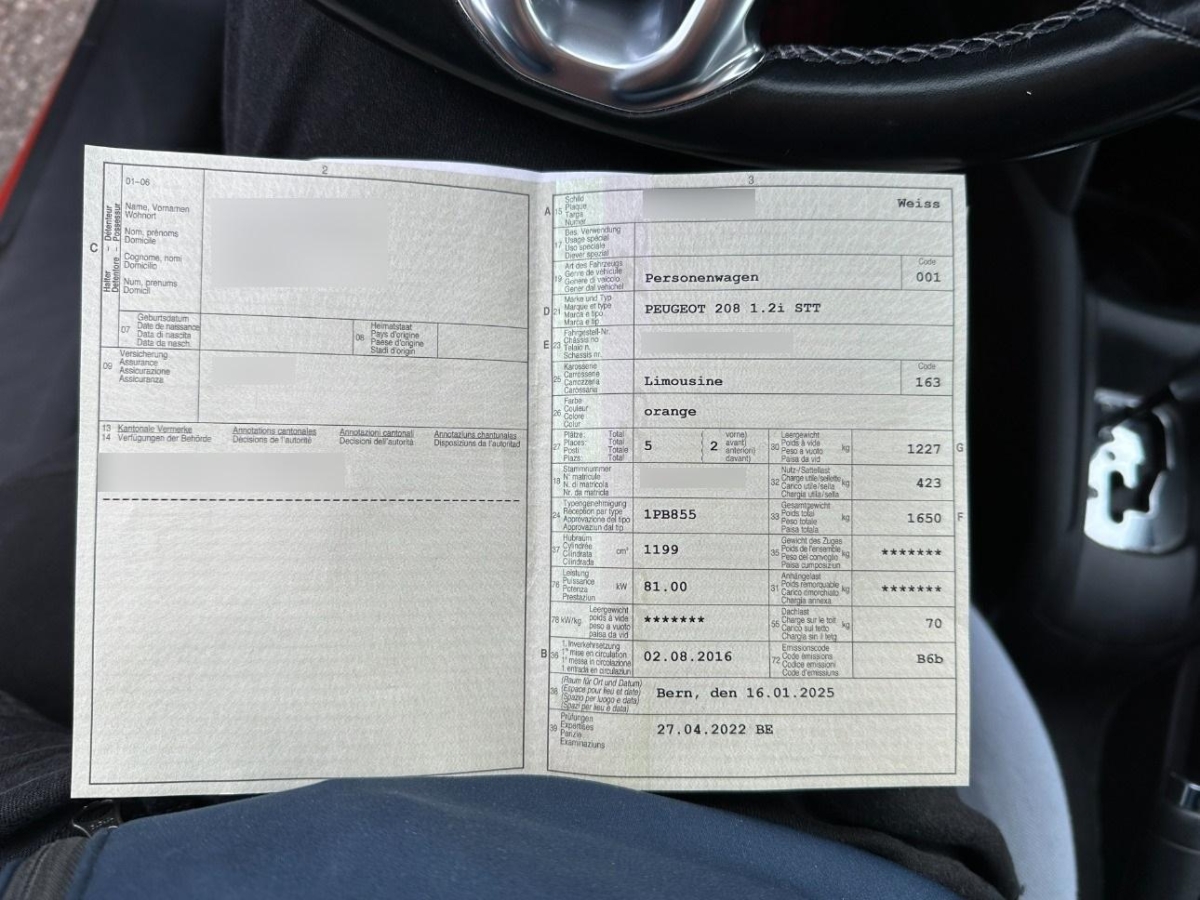 2
01-06
Name, Vornamen
Wohnort
Nom, prénoms
Domicile
Cognome, nomi
Domicilio
Num, prenums
Domicil
C
Halter – Détenteur
Detentore – Possessur
07
Geburtsdatum
Date de naissance
Data di nascita
Data da nasch.
08
Heimatstaat
Pays d'origine
Paese d'origine
Stadi d'origin
09
Versicherung
Assurance
Assicurazione
Assicuranza
13 Kantonale Vermerke
14 Verfügungen der Behörde
Annotations cantonales
Décisions de l'autorité
Annotazioni cantonali
Decisioni dell'autorità
Annotaziuns chantunalas
Disposiziuns da l'autoritad
3
A 15
Schild
Plaque
Targa
Numer
Weiss
17
Bes. Verwendung
Usage spécial
Uso speciale
Diever spezial
19
Art des Fahrzeugs
Genre de véhicule
Genere di veicolo
Gener dal vehichel
Personenwagen
Code
001
D 21
Marke und Typ
Marque et type
Marca e tipo
Marca e tip
PEUGEOT 208 1.2i STT
E 23
Fahrgestell-Nr.
Châssis no
Telaio n.
Schassis nr.
25
Karosserie
Carrosserie
Carrozzeria
Carossaria
Limousine
Code
163
26
Farbe
Couleur
Colore
Colur
orange
27
Plätze: Total
Places: Total
Posti: Totale
Plazs: Total
5
2
vorne)
avant)
anteriori)
davant)
30
Leergewicht
Poids à vide
Peso a vuoto
Paisa da vid
kg
1227
G
18
Stammnummer
N° matricule
N. di matricola
Nr. da matricla
32
Nutz-/Sattellast
Charge utile/sellette
Carico utile/sella
Chargia utila/sella
kg
423
24
Typengenehmigung
Réception par type
Approvazione del tipo
Approvaziun dal tip
1PB855
33
Gesamtgewicht
Poids total
Peso totale
Paisa totala
kg
1650
F
37
Hubraum
Cylindrée
Cilindrata
Cilindrada
cm³
1199
35
Gewicht des Zuges
Poids de l'ensemble
Peso del convoglio
Paisa cumposiziun
kg
*******
76
Leistung
Puissance
Potenza
Prestaziun
kW
81.00
31
Anhängelast
Poids remorquable
Carico rimorchiato
Chargia annexa
kg
*******
78 kW/kg
Leergewicht
poids à vide
peso a vuoto
paisa da vid
*******
55
Dachlast
Charge sur le toit
Carico sul tetto
Chargia sin il tetg
kg
70
B 36
1. Inverkehrsetzung
1re mise en circulation
1a messa in circolazione
1. entrada en circulaziun
02.08.2016
72
Emissionscode
Code émissions
Codice emissioni
Code d'emissiuns
B6b
38
(Raum für Ort und Datum)
(Espace pour lieu et date)
(Spazio per luogo e data)
(Spazi per lieu e data)
Bern, den 16.01.2025
39
Prüfungen
Expertises
Perizie
Examinaziuns
27.04.2022 BE